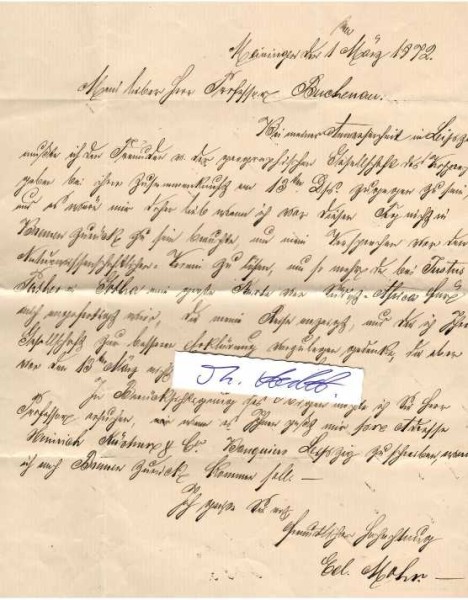 Meiningen den 1ten März 1872.
Mein lieber Herr Professor Buchenau.
Bei meiner Anwesenheit in Leipzig
mußte ich den Freunden v. der geographischen Gesellschaft das Versprechen
geben bei ihrer Zusammenkunft am 13ten Dss. zugegen zu sein
und es wäre mir daher lieb wenn ich vor diesem nicht in
Bremen zurück zu sein brauchte, um mein Versprechen vor dem
Naturwissenschaftlichen Verein zu lösen, um so mehr da bei Justus
Perthes in Gotha eine große Karte von Africa für
mich angefertigt wird, die meine Reise anzeigt, und die ich Ihrer
Gesellschaft zur besseren Erklärung vorzulegen gedenke, die aber
vor dem 13ten März
In Berücksichtigung des Obigen möchte ich Sie Herr
Professor ersuchen, mir wenn es Ihnen paßt mir pore Adresse
Heinrich & Co. Leipzig zu schreiben, wann
ich nach Bremen zurück kommen soll. —
Ich grüße Sie mit
freundlicher Hochachtung
Ed. Mohr —